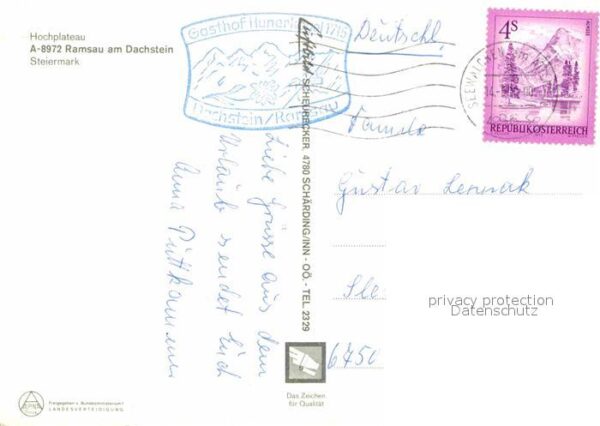 Hochplateau
A-8972 Ramsau am Dachstein
Steiermark
Gasthof Hunerkogel
Dachstein/Ramsau
Luftbild-SCHEURECKER. 4780 SCHÄRDING/INN - OÖ. - TEL. 2329
4S
REPUBLIK ÖSTERREICH
Deutschl.
Familie
Gustav
6450
Liebe Grüsse aus dem
Urlaub sendet Euch
Anna
privacy protection
Datenschutz
Das Zeichen
für Qualität
Freigegeben v. Bundesministerium f.
LANDESVERTEIDIGUNG